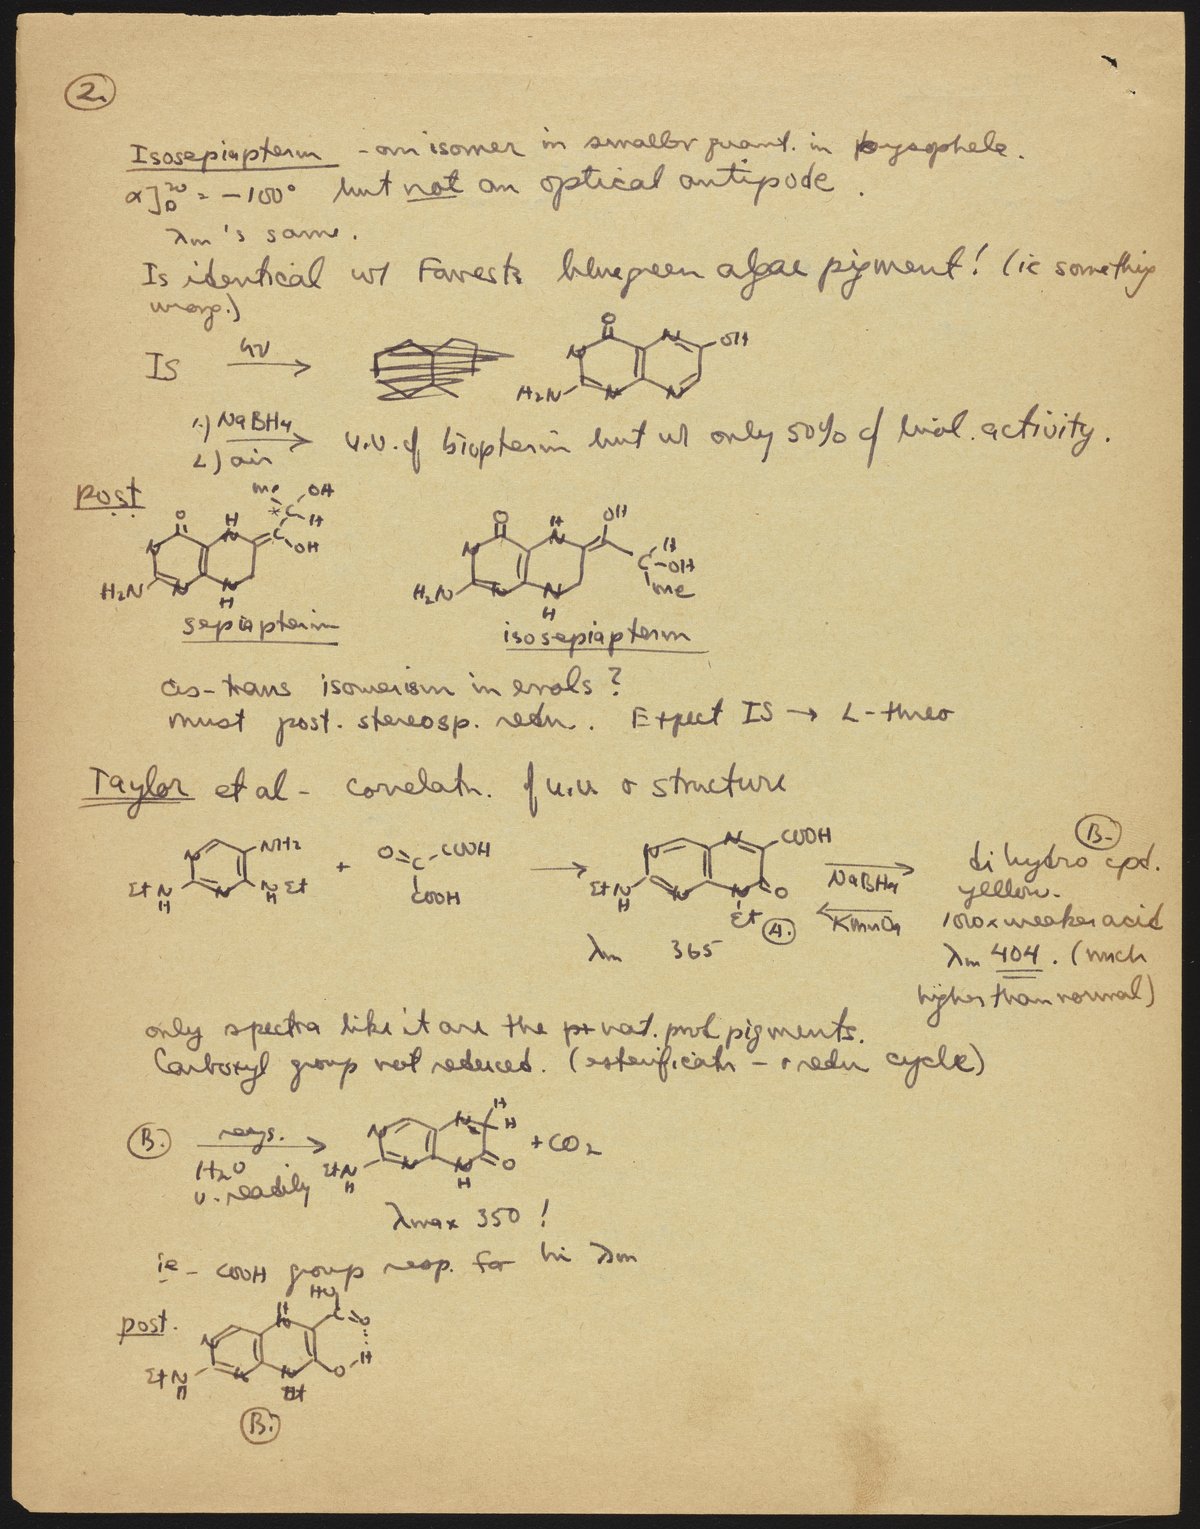 2.
Isosepiapterin - an isomer in smaller quant. in
α]D20 = -100° but not an optical antipode.
λm's same.
Is identical w/ Forrest's bluegreen algae pigment! (ie something
wrong.)
IS hν → O N N OH H2N N N
1.) NaBH4
2.) air
u.v. of biopterin but w/ only 50% of biol. activity.
post
Me OH
* C H
O H N N C OH
H2N N N H
sepiapterin
O H N N OH C H OH Me
H2N N N H
isosepiapterin
cis-trans isomerism in enols?
must post. stereosp. redn. Expect IS → L-threo
Taylor et al - correlatn. of u.v. & structure
N NH2 EtN H N N Et H + O=C-COOH COOH → N N COOH EtN H N N O Et A. NaBH4 KMnO4
λm 365
B.
dihydro cpd.
yellow.
100x weaker acid
λm 404. (much
higher than normal)
only spectra like it are the nat. prod pigments.
Carboxyl group not reduced. (esterificatn - redn cycle)
B. H2O v. readily → N N H H EtN H N N H O + CO2
λmax 350!
ie - COOH group resp. for hi λm
post.
HO C=O
N H N O-H
EtN H N N Et
B.